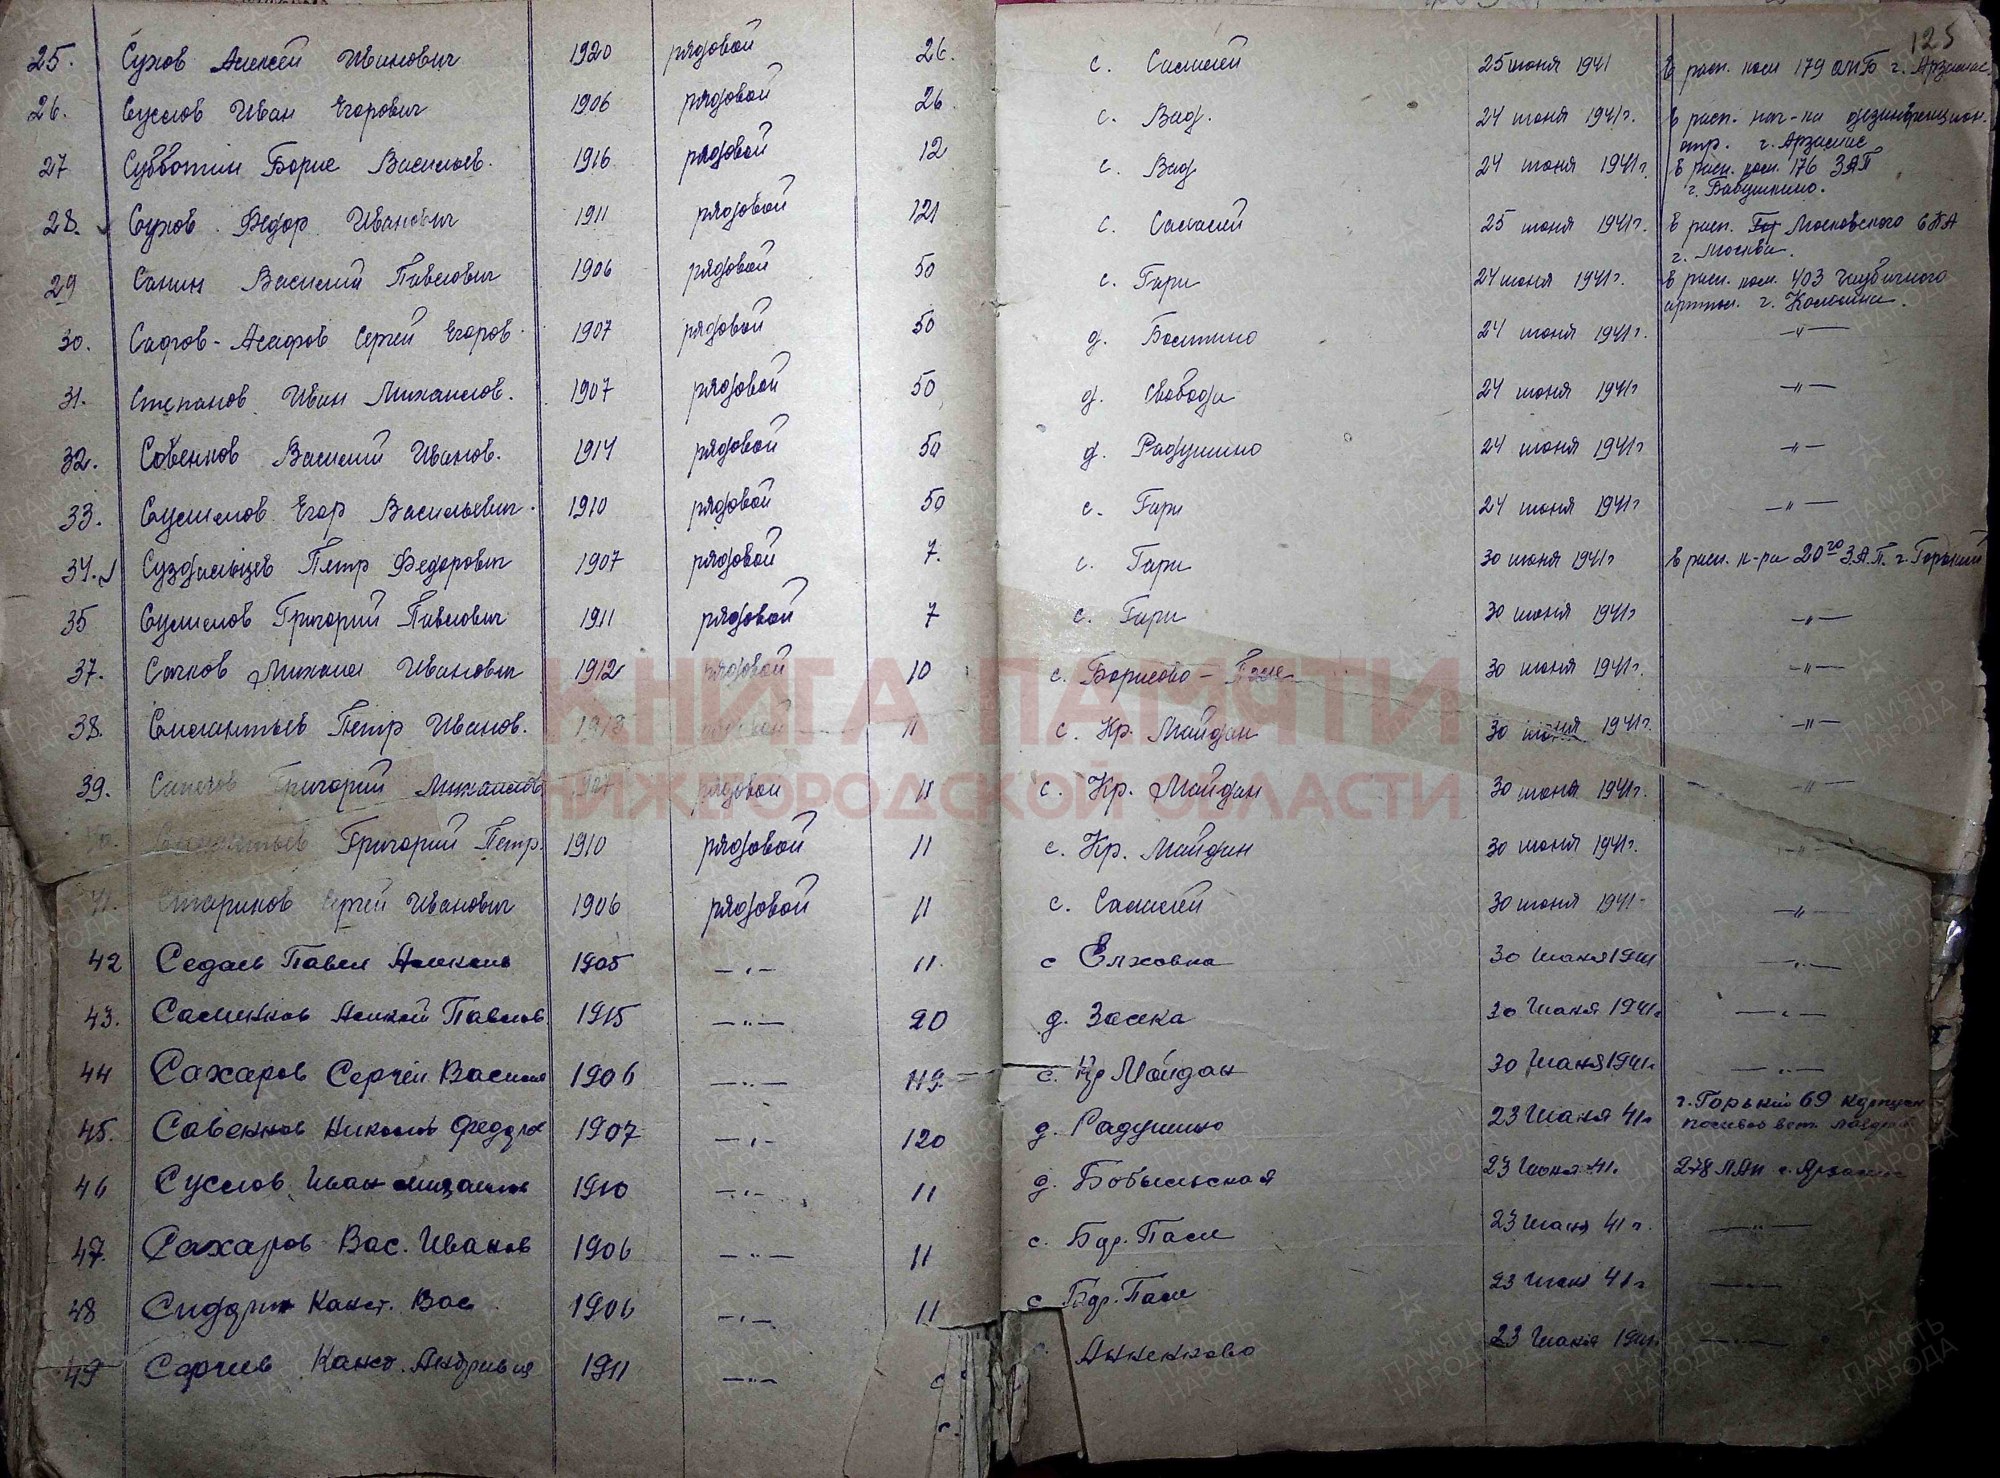 125
25. Сухов Алексей Иванович 1920 рядовой 26. с. Салалей 25 июня 1941 в расп. ком 179 г. Арзамас
26. Суслов Иван Егорович 1906 рядовой 26. с. Вад. 24 июня 1941г. в расп. нач-ка дезинфекцион.
отр. г. Арзамас
27 Субботин Борис Васильев. 1916 рядовой 12 с. Вад 24 июня 1941г. в расп. ком. 176 ЗАП
г. Бабушкино.
28. Сухов Федор Иванович 1911 рядовой 121 с. Салалей 25 июня 1941г. в расп. Московского
г. Москва.
29 Санин Василий Павлович 1906 рядовой 50 с. Гари 24 июня 1941г. в расп. ком. 403 гаубичного
артпол. г. Коломна.
30. Сафров-Асафов Сергей Егоров. 1907 рядовой 50 д. 24 июня 1941г. —"—
31. Степанов Иван Михайлов. 1907 рядовой 50 д. Свобода 24 июня 1941г —"—
32. Совенков Василий Иванов. 1914 рядовой 50 д. Радушино 24 июня 1941г —"—
33. Егор Васильевич. 1910 рядовой 50 с. Гари 24 июня 1941г —"—
34. Суздальцев Петр Федорович 1907 рядовой 7. с. Гари 30 июня 1941г в расп. к-ра 20го З.А.П. г. Горький
35 Григорий Павлович 1911 рядовой 7 с. Гари 30 июня 1941г —"—
37. Сачков Михаил Иванович 1912 рядовой 10 с. Борисово - Поле 30 июня 1941г. —"—
38. Силантьев Петр Иванов. рядовой 11 с. Кр. Майдан 30 июня 1941г. —"—
39. Григорий Михайлов рядовой 11 с. Кр. Майдан 30 июня 1941г. —"—
Силантьев Григорий Петр. 1910 рядовой 11 с. Кр. Майдан 30 июня 1941г. —"—
41. Стариков Сергей Иванович 1906 рядовой 11 с. Салалей 30 июня 1941г —"—
42 Павел 1905 —"— 11 с Елховка 30 Июня 1941 —"—
43. Павлов 1915 —"— 20 д. Засека 30 Июня 1941г. —"—
44 Сахаров Сергей Василь 1906 —"— 119 с. Кр Майдан 30 Июня 1941г. —"—
45. Савенков Николай Федор 1907 —"— 120 д. Радушино 23 Июня 41г г. Горький 69
46 Суслов Иван Михайлов 1910 —"— 11 д. Бобыльская 23 Июня 41г. 278 г. Арзамас
47. Сахаров Вас. Иванов 1906 —"— 11 с. Бор. Поле 23 Июня 41г. —"—
48 Конст. Вас 1906 —"— 11 с Бор. Поле 23 Июня 41г —"—
49 Сергеев Конст. Андреевич 1911 —"— Анненково 23 Июня 1941г. —"—
КНИГА ПАМЯТИ
НИЖЕГОРОДСКОЙ ОБЛАСТИ
ПАМЯТЬ
НАРОДА